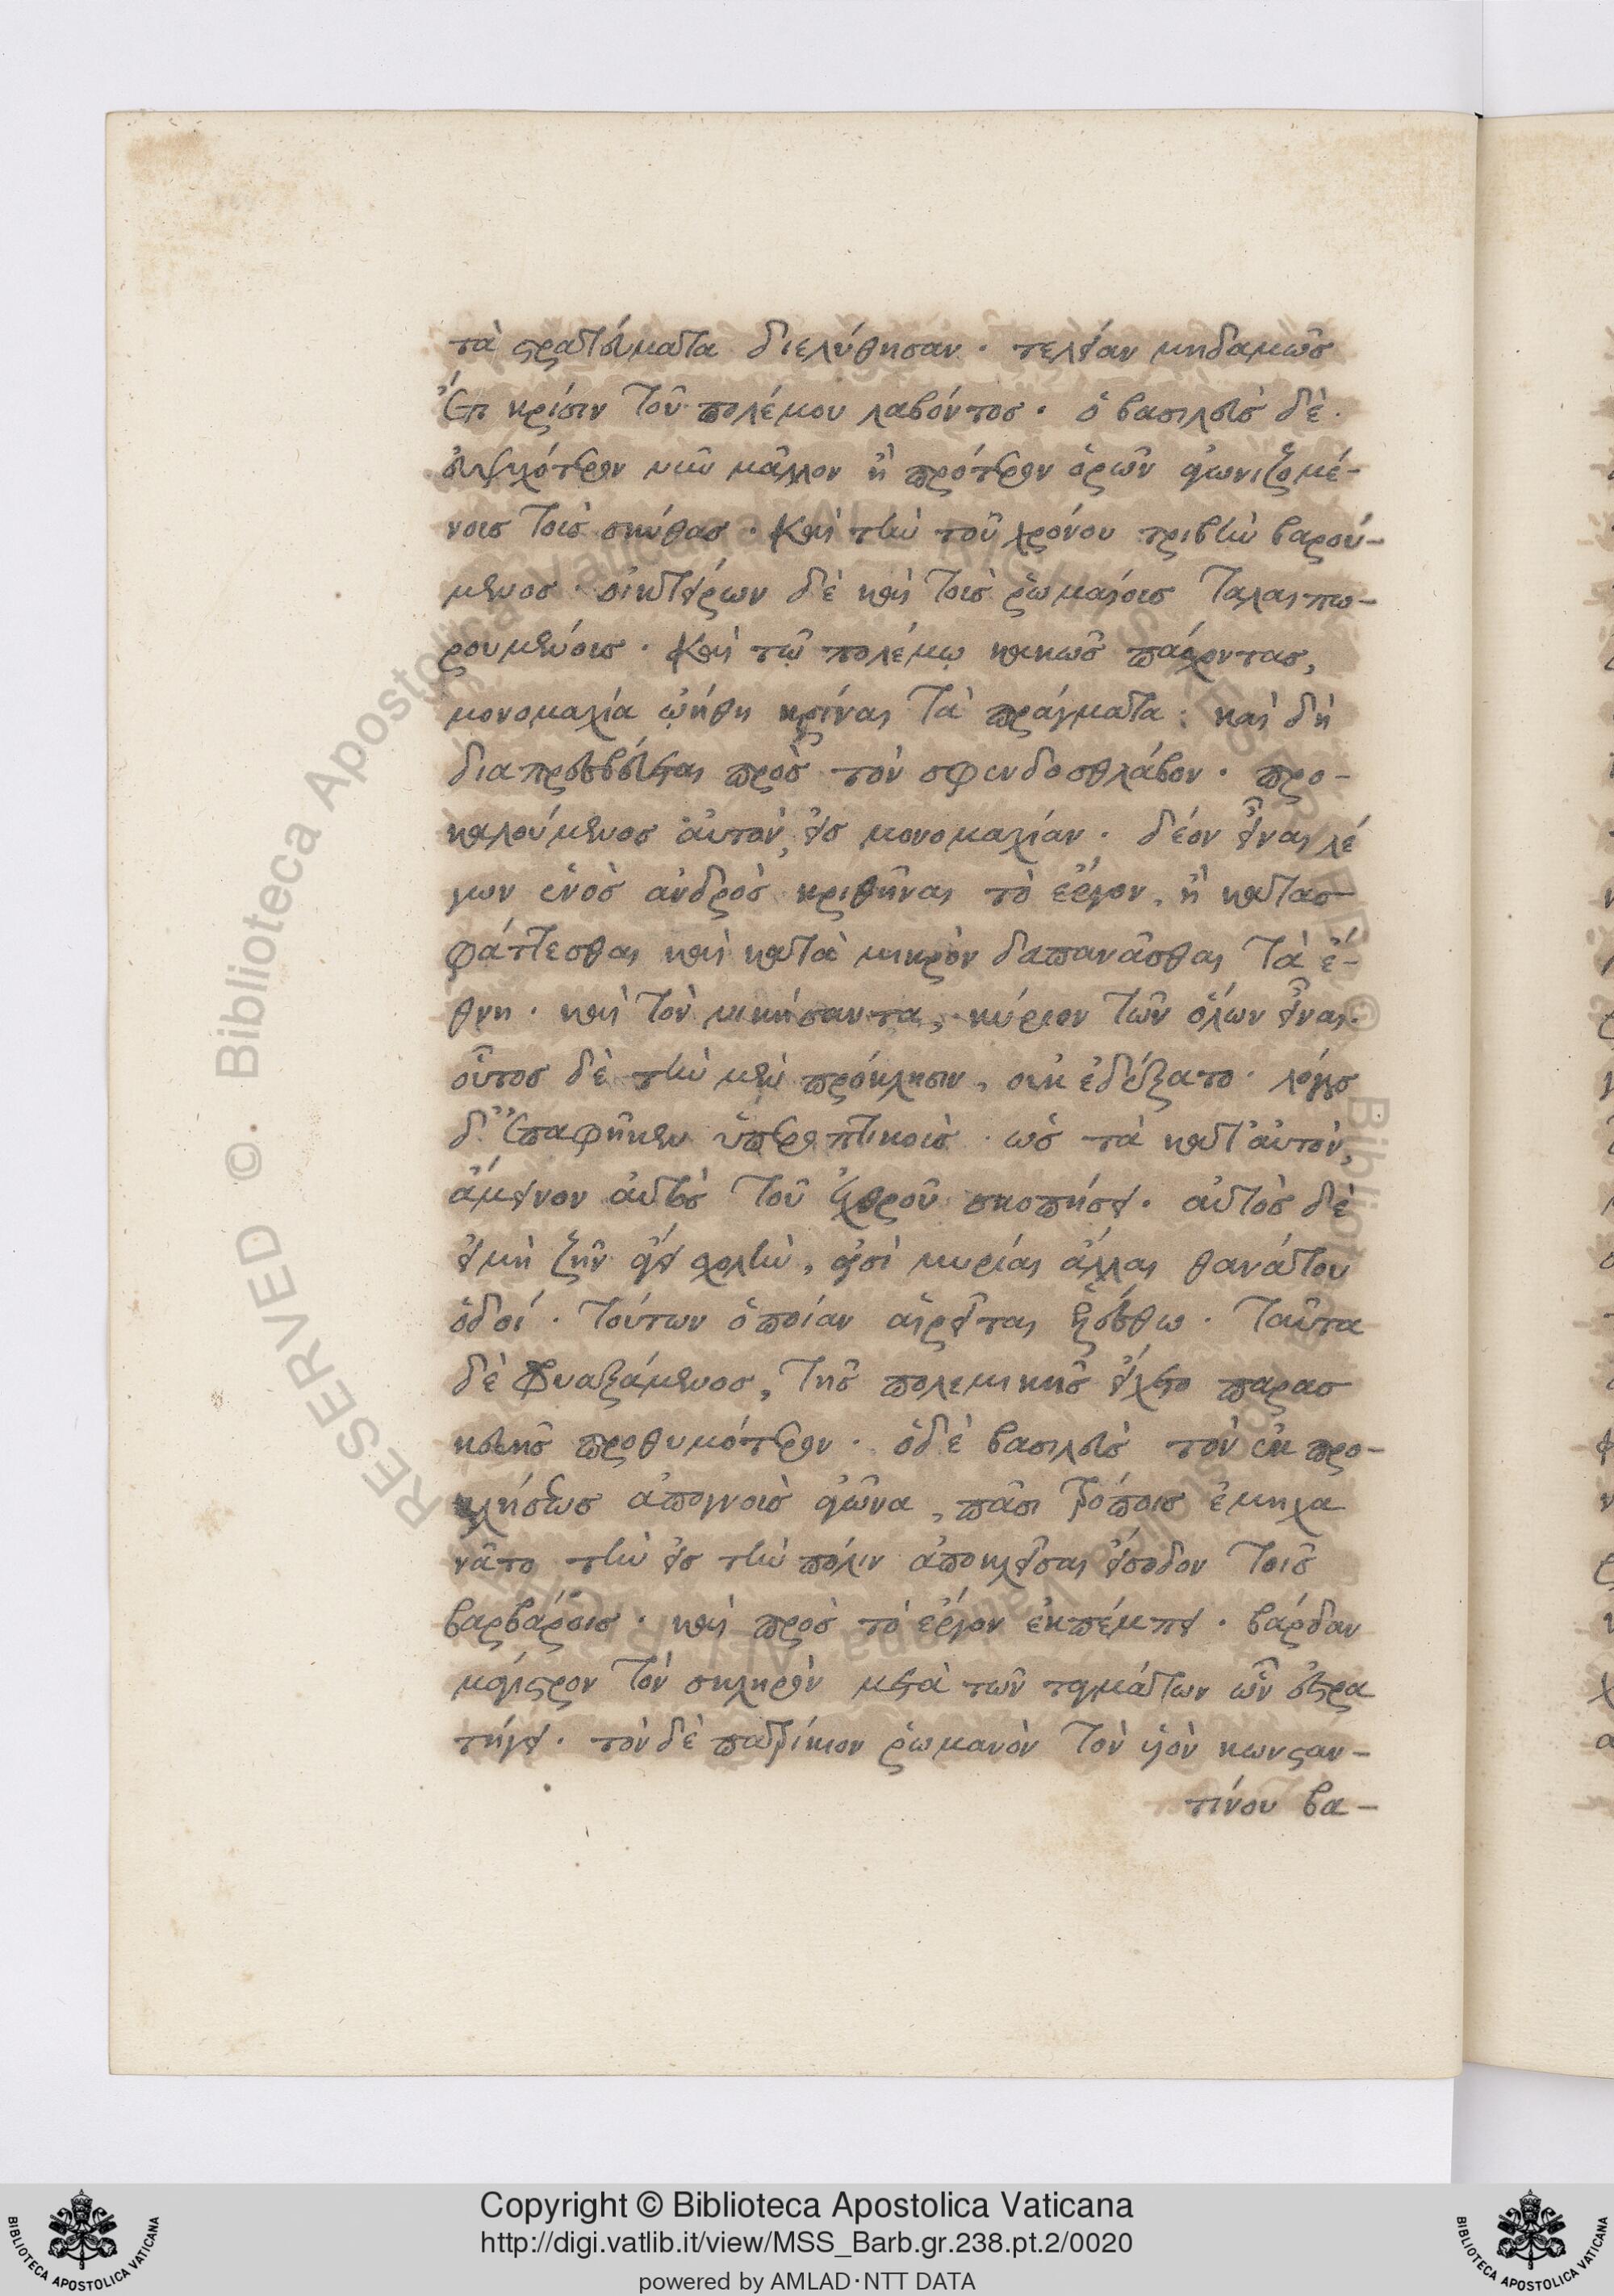 τὰ στρατεύματα διελύθησαν · τελείαν μηδαμῶς
ἔτι κρίσιν τοῦ πολέμου λαβόντος · ὁ βασιλεὺς δὲ ·
εὐψυχότερον νῦν μᾶλλον ἢ πρότερον ὁρῶν ἀγωνιζομέ-
νους τοὺς σκύθας · καὶ τὴν τοῦ χρόνου τριβὴν βαρού-
μενος · οἰκτείρων δὲ καὶ τοὺς ῥωμαίους ταλαιπω-
ρουμένους · καὶ τῷ πολέμῳ κακῶς πάσχοντας,
μονομαχία ᾠήθη κρίναι τὰ πράγματα · καὶ δὴ
διαπρεσβεύεται πρὸς τὸν σφενδοσθλάβον · προ-
καλούμενος αὐτὸν εἰς μονομαχίαν · δέον εἶναι λέ
γων ἑνὸς ἀνδρὸς κριθῆναι τὸ ἔργον, ἢ κατασ
φάττεσθαι καὶ κατὰ μικρὸν δαπανᾶσθαι τὰ ἔ-
θνη · καὶ τὸν νικήσαντα, κύριον τῶν ὅλων εἶναι ·
οὗτος δὲ τὴν μὲν πρόκλησιν, οὐκ ἐδέξατο · λόγους
δ' ἐπαφῆκεν ὑπεροπτικοὺς · ὡς τὰ κατ' αὐτὸν,
ἄμεινον αὐτὸς τοῦ ἐχθροῦ σκοπήσει · αὐτὸς δὲ
εἰ μὴ ζῆν ἄγει σχολὴν, εἰσὶ μυρίαι ἄλλαι θανάτου
ὁδοί · τούτων ὁποίαν αἱρεῖται ἐχέσθω · ταῦτα
δὲ φρυαξάμενος, τῆς πολεμικῆς εἴχετο παρασ
κευῆς προθυμότερον · ὁ δὲ βασιλεὺς τὸν ἐκ προ-
κλήσεως ἀπογνοὺς ἀγῶνα, πᾶσι τρόποις ἐμηχα
νᾶτο τὴν εἰς τὴν πόλιν ἀποκλεῖσαι εἴσοδον τοῖς
βαρβάροις · καὶ πρὸς τὸ ἔργον ἐκπέμπει · βάρδαν
μάγιστρον τὸν σκληρὸν μετὰ τῶν ταγμάτων ὧν ἐστρα
τήγει · τὸν δὲ πατρίκιον ῥωμανὸν τὸν υἱὸν κωνσταν-
τίνου βα-
Copyright © Biblioteca Apostolica Vaticana
http://digi.vatlib.it/view/MSS_Barb.gr.238.pt.2/0020
powered by AMLAD·NTT DATA